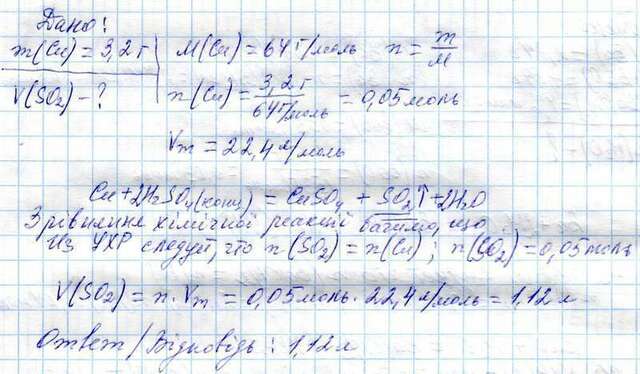 Дано:
m(Cu) = 3,2 г
V(SO₂) – ?
M(Cu) = 64 г/моль n = m/M
n(Cu) = 3,2 г / 64 г/моль = 0,05 моль
Vm = 22,4 л/моль
Cu + 2H₂SO₄(конц) = CuSO₄ + SO₂↑ + 2H₂O
З рівняння хімічної реакції бачимо, що
Из УХР следует, что n(SO₂) = n(Cu); n(SO₂) = 0,05 моль
V(SO₂) = n · Vm = 0,05 моль · 22,4 л/моль = 1,12 л
Ответ/Відповідь: 1,12 л